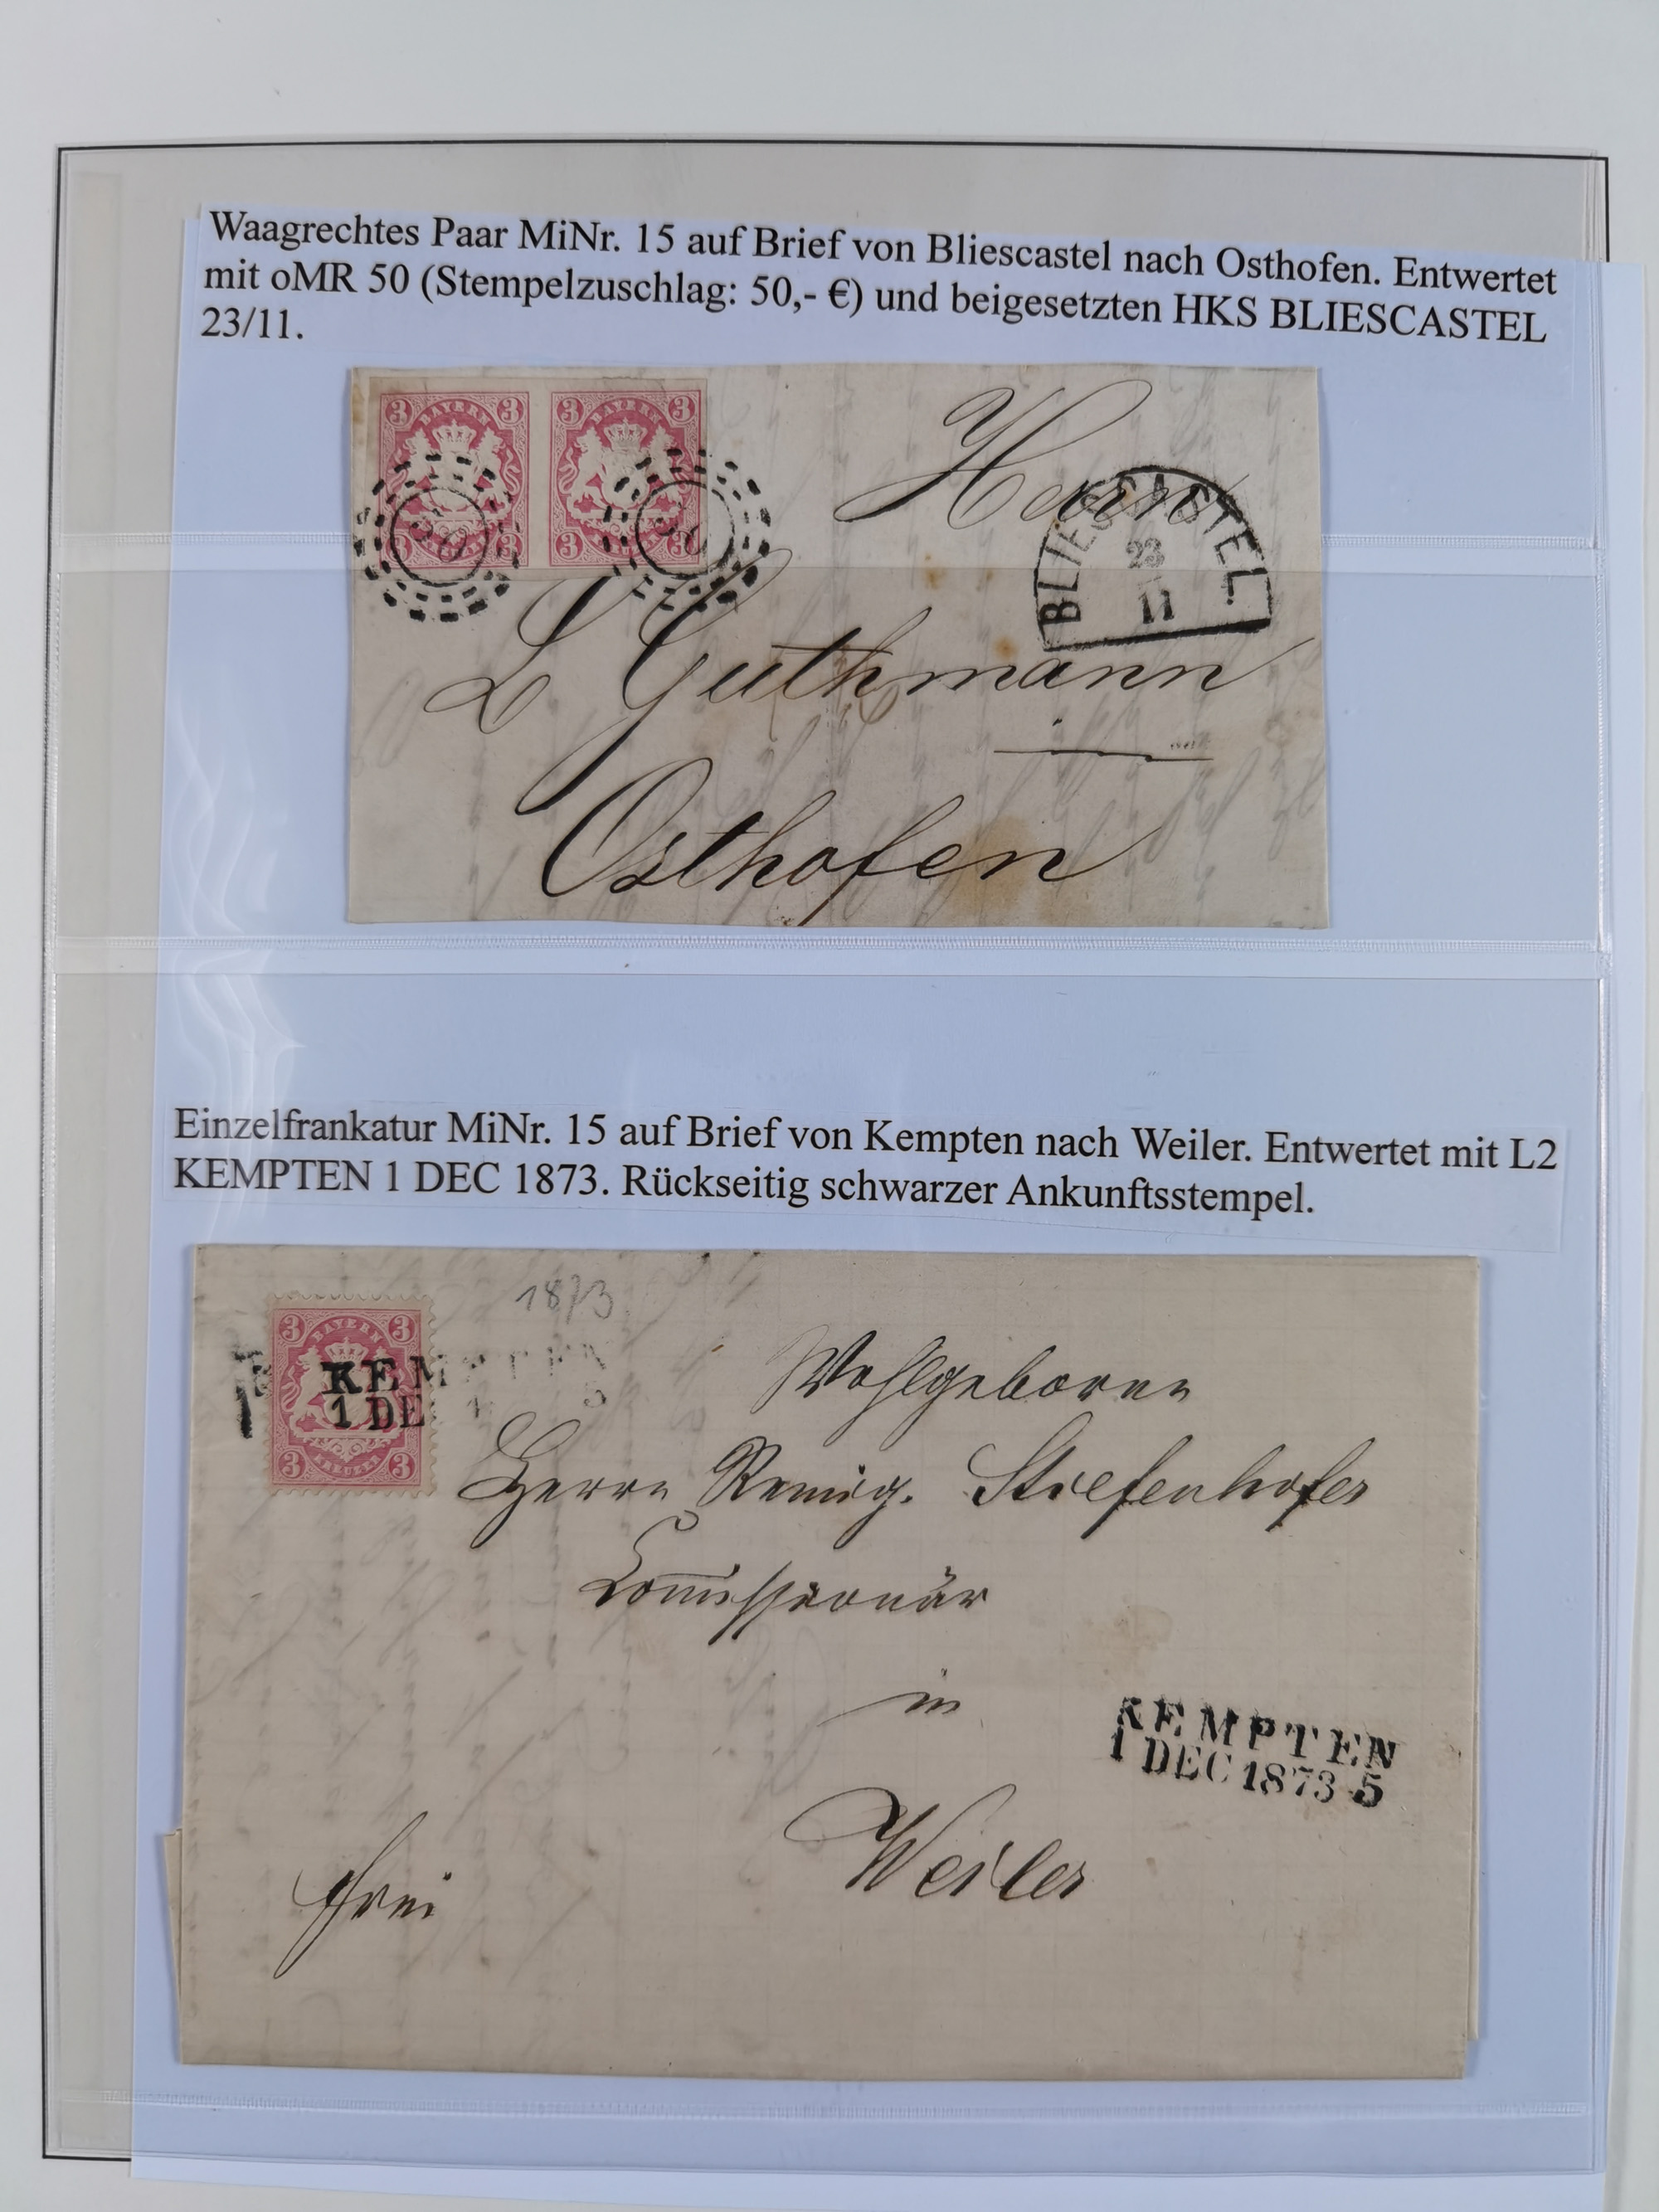 Waagrechtes Paar MiNr. 15 auf Brief von Bliescastel nach Osthofen. Entwertet
mit oMR 50 (Stempelzuschlag: 50,- €) und beigesetzten HKS BLIESCASTEL
23/11.
3 BAYERN 3
3 BAYERN 3
3
3 3
50
50
Herrn
BLIESCASTEL
23
11
L Guthmann
Osthofen
Einzelfrankatur MiNr. 15 auf Brief von Kempten nach Weiler. Entwertet mit L2
KEMPTEN 1 DEC 1873. Rückseitig schwarzer Ankunftsstempel.
1873
3 BAYERN 3
KEMPTEN
1 DE 5
3 KREUZER 3
Wohlgeboren
Herrn Remig. Stiefenhofer
Commissionär
in
KEMPTEN
1 DEC 1873 5
Weiler
frei